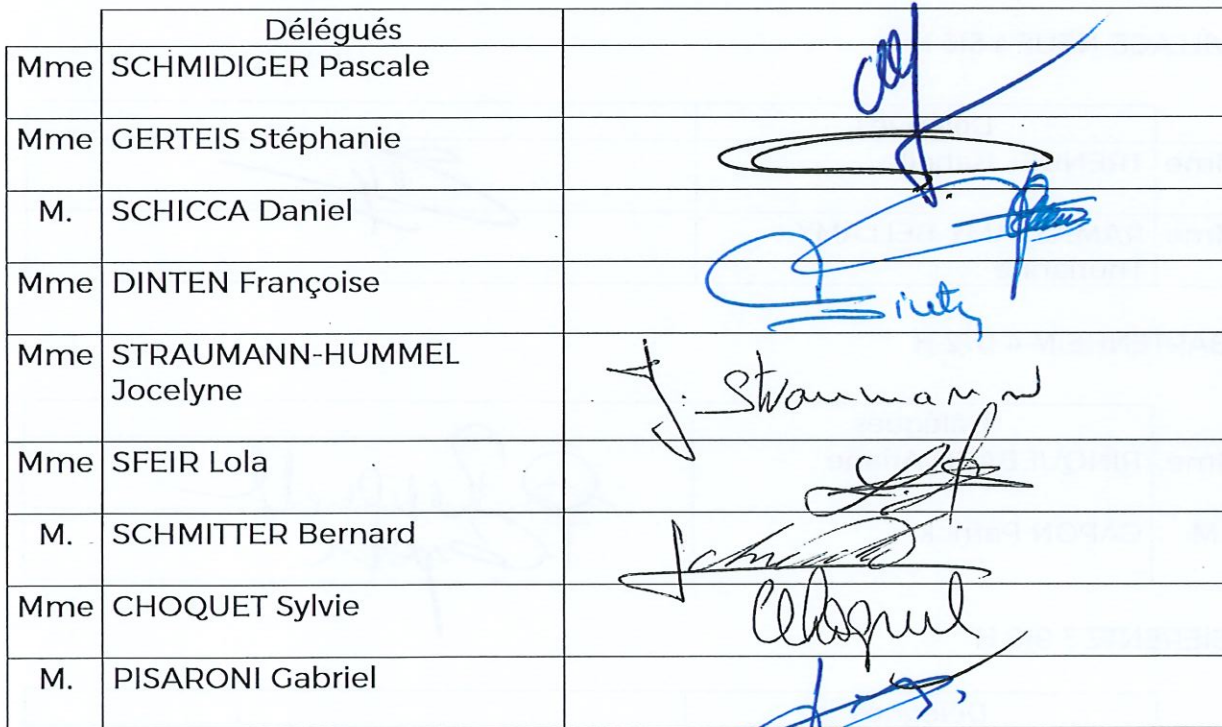 Délégués
Mme SCHMIDIGER Pascale
Mme GERTEIS Stéphanie
M. SCHICCA Daniel
Mme DINTEN Françoise
Mme STRAUMANN-HUMMEL
Jocelyne
J. Straumann
Mme SFEIR Lola
M. SCHMITTER Bernard
Mme CHOQUET Sylvie
M. PISARONI Gabriel